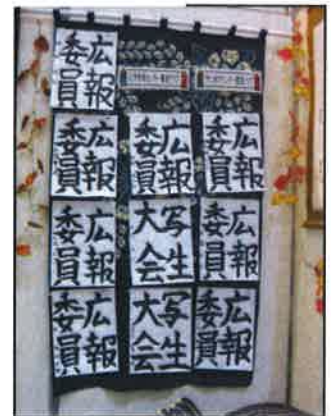 広報
委員
広報
委員
広報
委員
広報
委員
広報
委員
写生
大会
広報
委員
広報
委員
写生
大会
広報
委員